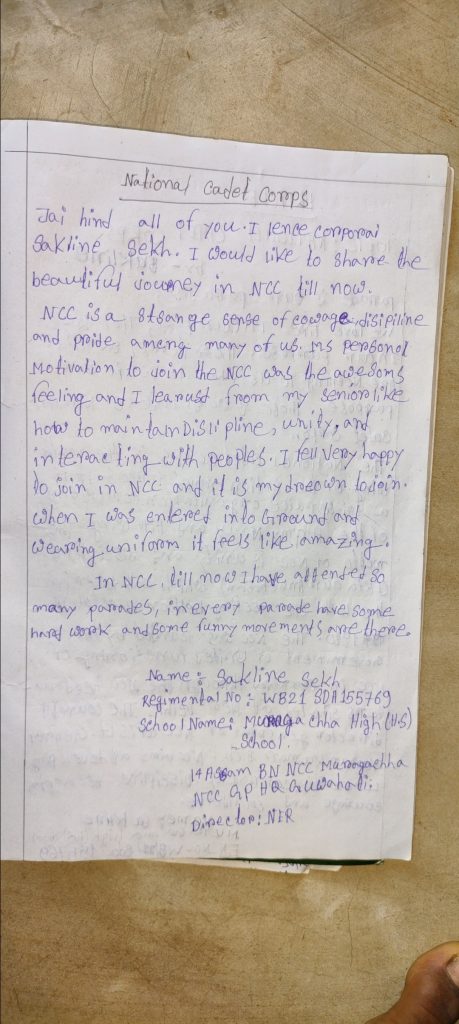 National Cadet Corps
Jai hind all of you. I lence corporal
Sakline Sekh. I would like to share the
beautiful vourney in NCC till now.
NCC is a strange sense of cowage, disipiline
and pride among many of us. Ms personol
Motivation to join the NCC was the awesoms
feeling and I learusd from my senior like
how to maintam Disli pline, unity, and
interac ting with peoples. I fell very happy
to join in NCC and it is my dreown to join.
When I was entered in to Ground and
wearing uniform it feels like amazing.
In NCC, till now I have attended so
many parades, in every parade have some
hard work and some funny movements are there.
Name: Sakline Sekh
Regimental No: WB21 SDA155769
School Name: Muragachha High (H.S)
School.
14 Assam BN NCC Muragachha
NCC GP HQ Guwahati.
Director: NER